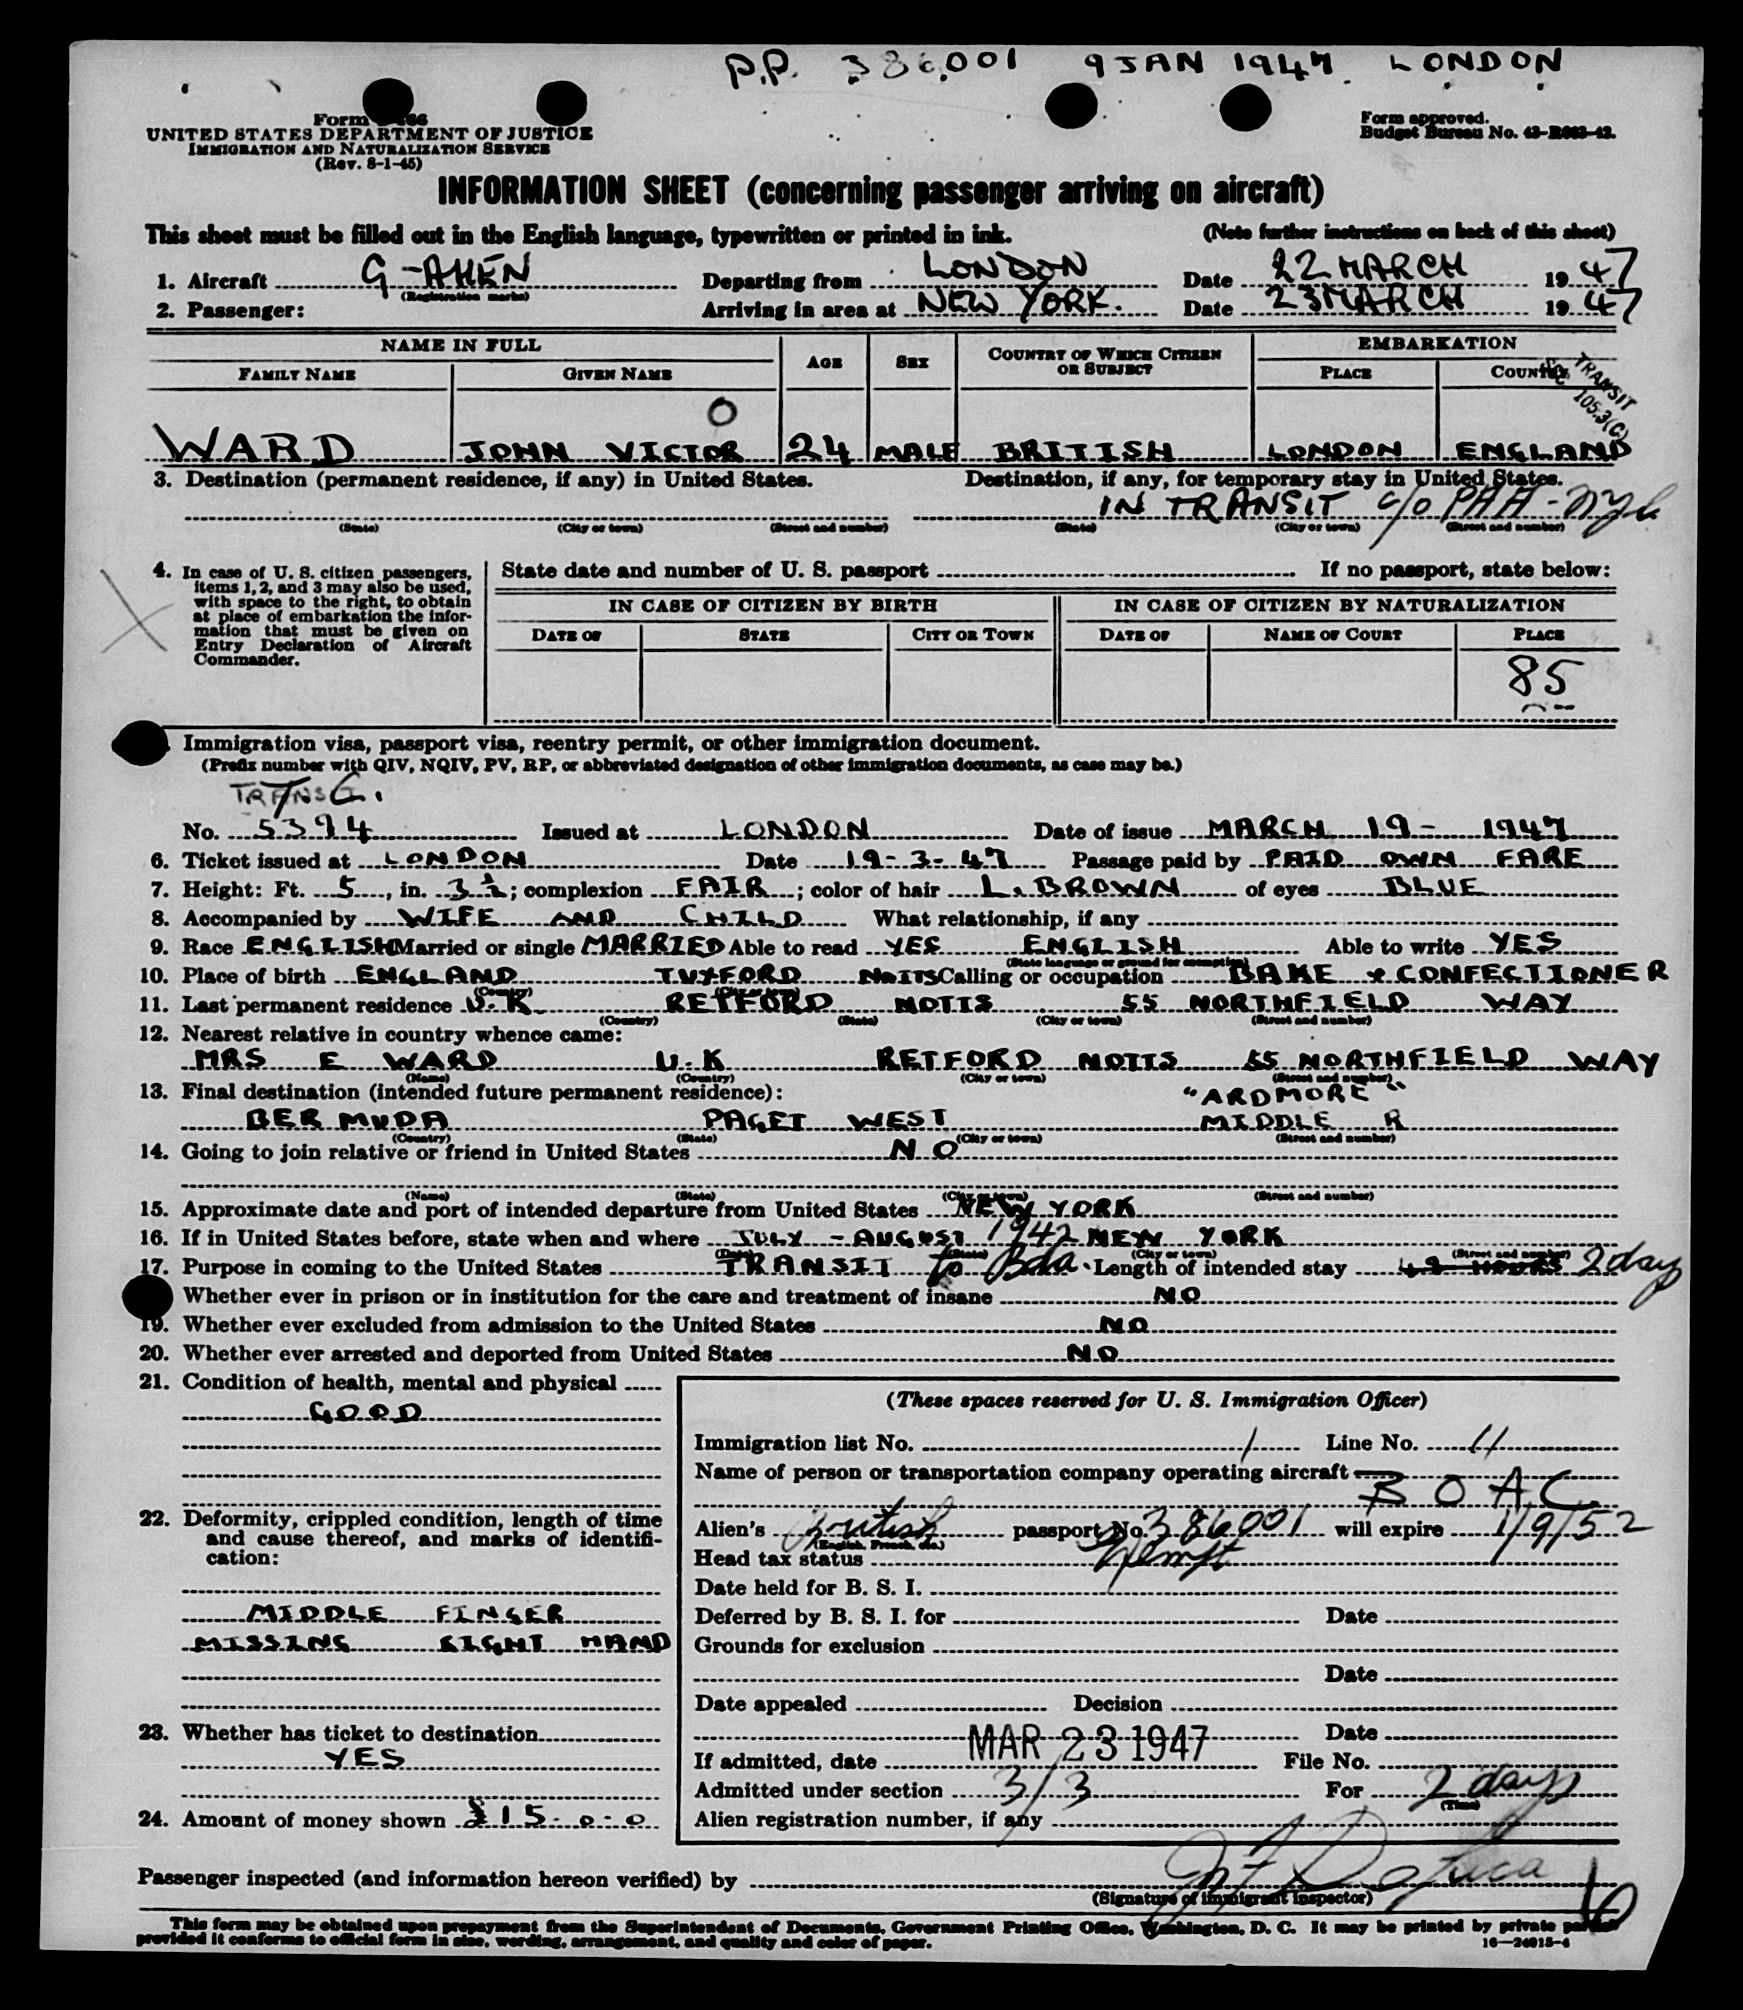 P.P. 386,001 9 JAN 1947. LONDON
Form
UNITED STATES DEPARTMENT OF JUSTICE
IMMIGRATION AND NATURALIZATION SERVICE
(Rev. 8-1-45)
Form approved.
Budget Bureau No.
INFORMATION SHEET (concerning passenger arriving on aircraft)
This sheet must be filled out in the English language, typewritten or printed in ink. (Note further instructions on back of this sheet)
1. Aircraft G-AHEN Departing from LONDON Date 22 MARCH 1947
(Registration marks)
2. Passenger: Arriving in area at NEW YORK. Date 23 MARCH 1947
NAME IN FULL AGE SEX COUNTRY OF WHICH CITIZEN OR SUBJECT EMBARKATION
FAMILY NAME GIVEN NAME PLACE COUNTRY
TRANSIT
105.3(C)
O
WARD JOHN VICTOR 24 MALE BRITISH LONDON ENGLAND
3. Destination (permanent residence, if any) in United States. Destination, if any, for temporary stay in United States.
IN TRANSIT c/o PAA - nyc
(State) (City or town) (Street and number) (State) (City or town) (Street and number)
4. In case of U. S. citizen passengers, items 1, 2, and 3 may also be used, with space to the right, to obtain at place of embarkation the information that must be given on Entry Declaration of Aircraft Commander.
State date and number of U. S. passport If no passport, state below:
IN CASE OF CITIZEN BY BIRTH IN CASE OF CITIZEN BY NATURALIZATION
DATE OF STATE CITY OR TOWN DATE OF NAME OF COURT PLACE
85
Immigration visa, passport visa, reentry permit, or other immigration document.
(Prefix number with QIV, NQIV, PV, RP, or abbreviated designation of other immigration documents, as case may be.)
No. 5394 Issued at LONDON Date of issue MARCH 19 - 1947
6. Ticket issued at LONDON Date 19-3-47 Passage paid by PAID OWN FARE
7. Height: Ft. 5, in. 3½; complexion FAIR; color of hair L. BROWN of eyes BLUE
8. Accompanied by WIFE AND CHILD What relationship, if any
9. Race ENGLISH Married or single MARRIED Able to read YES ENGLISH Able to write YES
(State language or ground for exemption)
10. Place of birth ENGLAND TUXFORD NOTTS Calling or occupation BAKE & CONFECTIONER
(Country) (City or town)
11. Last permanent residence U.K RETFORD NOTTS 55 NORTHFIELD WAY
(Country) (State) (City or town) (Street and number)
12. Nearest relative in country whence came:
MRS E WARD U.K RETFORD NOTTS 55 NORTHFIELD WAY
(Name) (Country) (City or town) (Street and number)
13. Final destination (intended future permanent residence): "ARDMORE"
BERMUDA PAGET WEST MIDDLE R
(Country) (State) (City or town) (Street and number)
14. Going to join relative or friend in United States NO
(Name) (State) (City or town) (Street and number)
15. Approximate date and port of intended departure from United States NEW YORK
16. If in United States before, state when and where JULY - AUGUST 1942 NEW YORK
(Date) (State) (City or town) (Street and number)
17. Purpose in coming to the United States TRANSIT to Bda. Length of intended stay 48 HOURS 2 days
Whether ever in prison or in institution for the care and treatment of insane NO
19. Whether ever excluded from admission to the United States NO
20. Whether ever arrested and deported from United States NO
21. Condition of health, mental and physical
GOOD
22. Deformity, crippled condition, length of time and cause thereof, and marks of identification:
MIDDLE FINGER
MISSING RIGHT HAND
23. Whether has ticket to destination
YES
24. Amount of money shown £15-0-0
(These spaces reserved for U. S. Immigration Officer)
Immigration list No. 1 Line No. 11
Name of person or transportation company operating aircraft
B O A C
Alien's British passport No. 386001 will expire 1/9/52
(English, French, etc.)
Head tax status
Date held for B. S. I.
Deferred by B. S. I. for Date
Grounds for exclusion
Date
Date appealed Decision
Date
If admitted, date MAR 23 1947 File No.
Admitted under section 3/3 For 2 days
(Time)
Alien registration number, if any
Passenger inspected (and information hereon verified) by
(Signature of immigrant inspector)
This form may be obtained upon prepayment from the Superintendent of Documents, Government Printing Office, Washington, D. C. It may be printed by private parties
provided it conforms to official form in size, wording, arrangement, and quality and color of paper.
16—24915-4